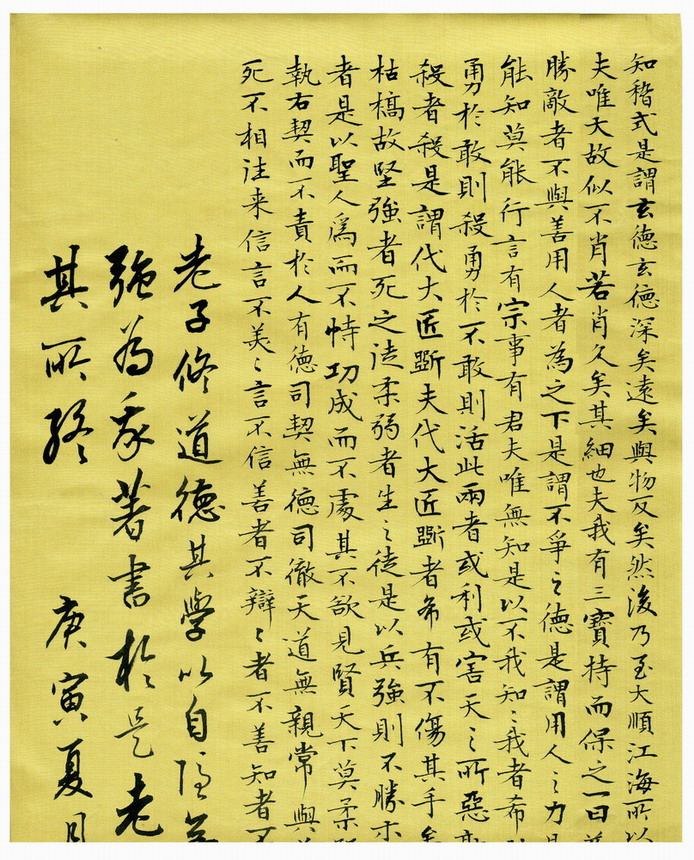 知稽式是謂玄德玄德深矣遠矣與物反矣然後乃至大順江海所以
夫唯大故似不肖若肖久矣其細也夫我有三寶持而保之一曰
勝敵者不與善用人者為之下是謂不爭之德是謂用人之力是
能知莫能行言有宗事有君夫唯無知是以不我知〻我者希
勇於敢則殺勇於不敢則活此兩者或利或害天之所惡
殺者殺是謂代大匠斲夫代大匠斲者希有不傷其手矣
枯槁故堅強者死之徒柔弱者生之徒是以兵強則不勝木
者是以聖人為而不恃功成而不處其不欲見賢天下莫柔
執右契而不責於人有德司契無德司徹天道無親常與
死不相往来信言不美〻言不信善者不辯〻者不善知者不
老子修道德其學以自隱無
強為我著書於是老
其所終 庚寅夏月